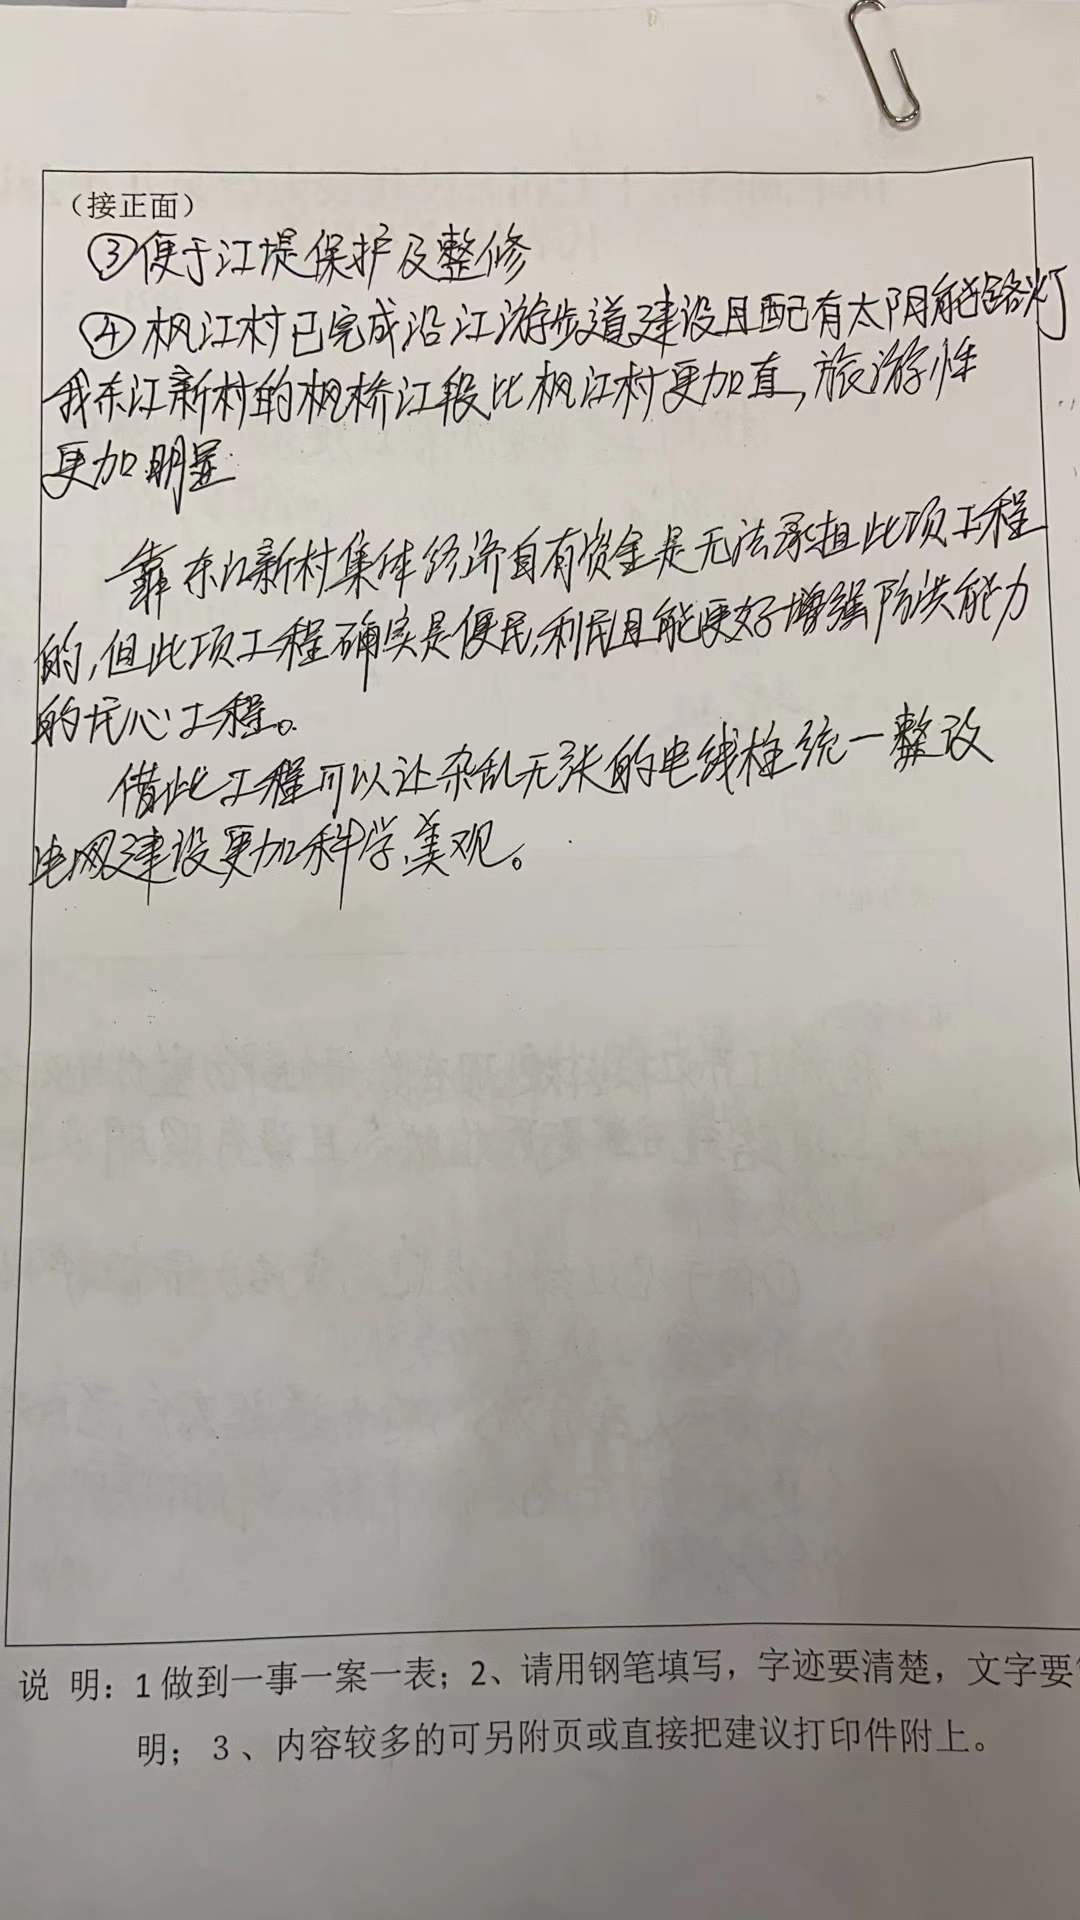 （接正面）
③便于江堤保护及整修
④枫江村已完成沿江游步道建设且配有太阳能路灯
我东江新村的枫桥江段比枫江村更加直，旅游性
更加明显
靠东江新村集体经济自有资金是无法承担此项工程
的，但此项工程确实是便民，利民且能更好增强防洪能力
的民心工程。
借此工程可以让杂乱无张的电线柱统一整改
电网建设更加科学、美观。
说 明：1 做到一事一案一表；2、请用钢笔填写，字迹要清楚，文字要
明；3、内容较多的可另附页或直接把建议打印件附上。